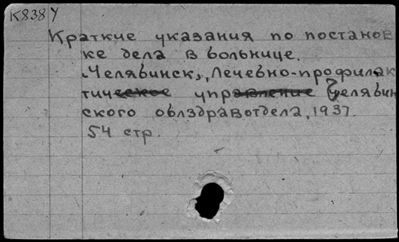 К838У
Краткие указания по постанов
ке дела в больнице.
Челябинск, Лечебно-профилак
тическое управление Челябин
ского облздравотдела, 1937.
54 стр.